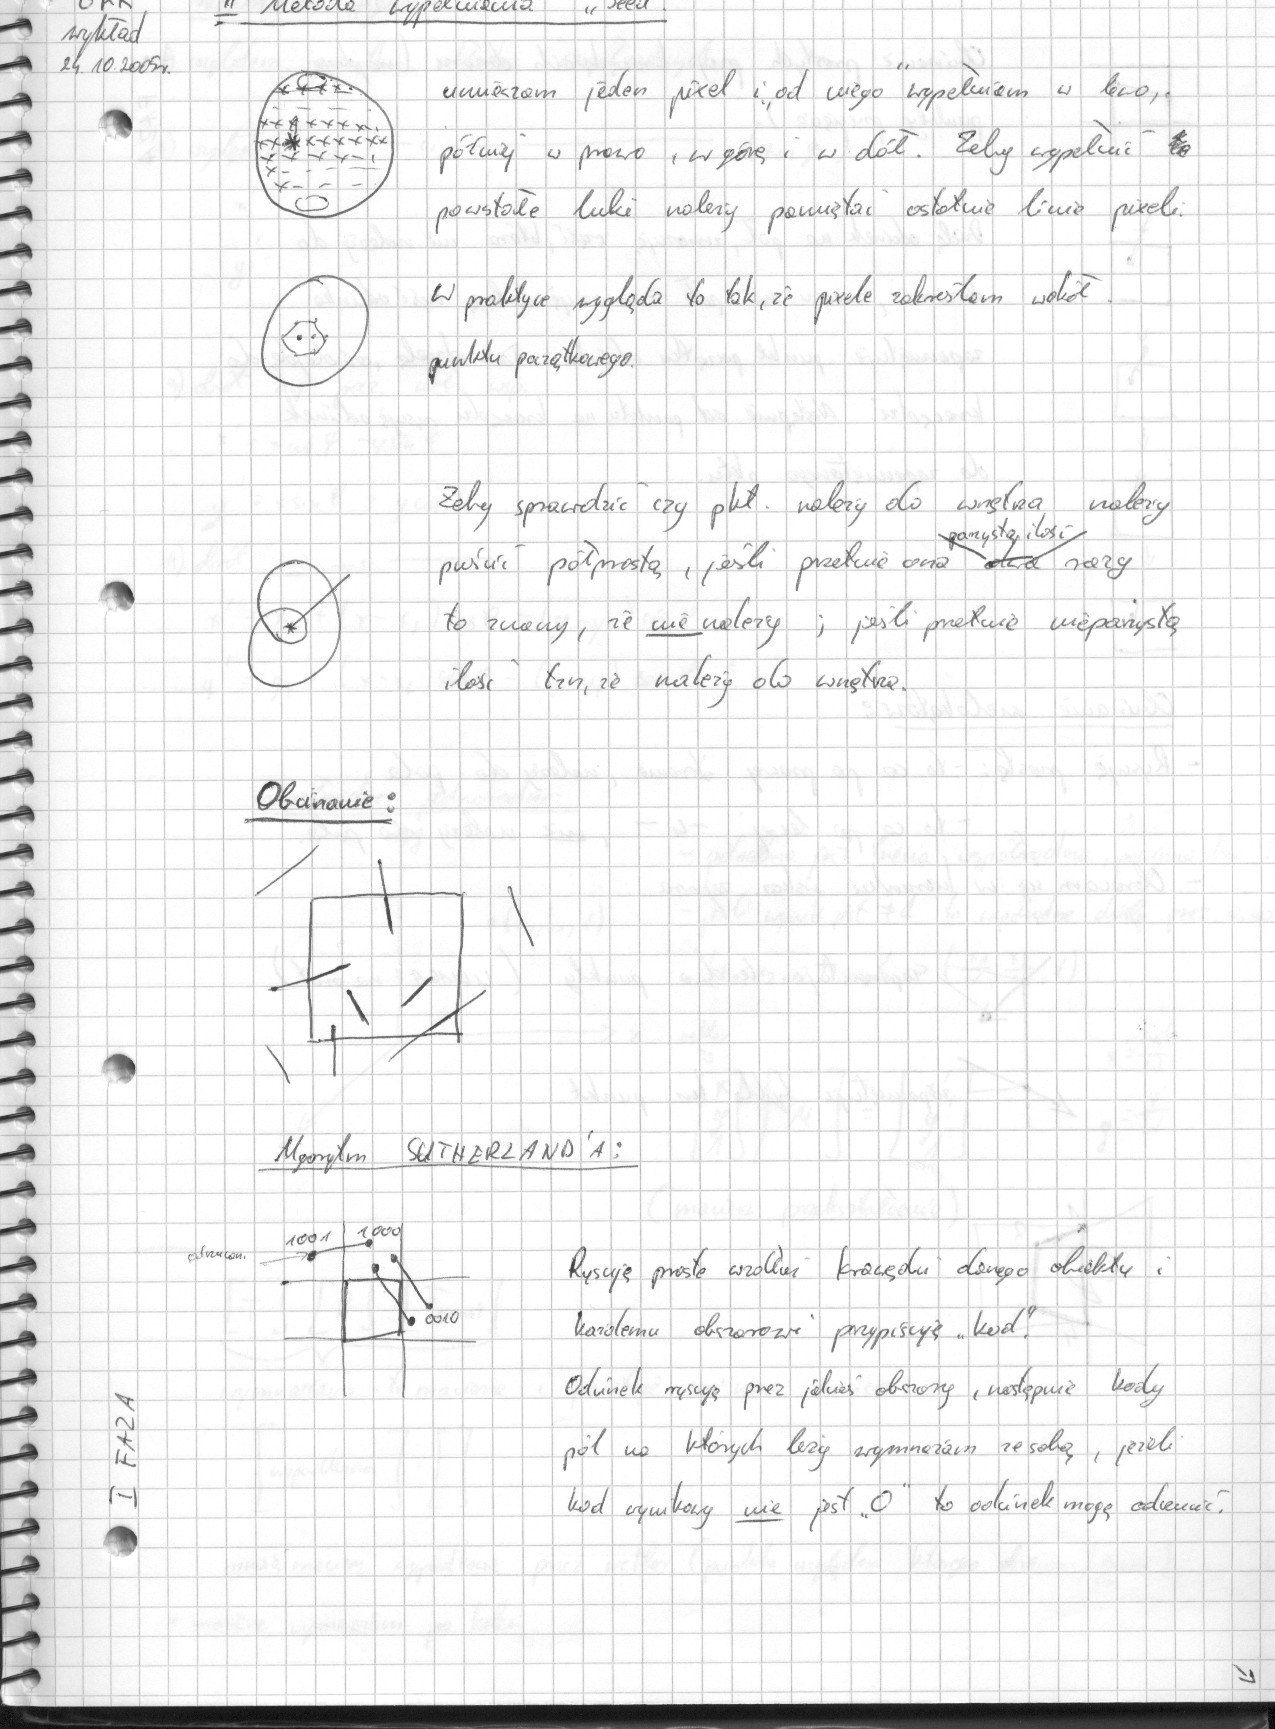 wykład
24.10.2005r.
" Metoda wypełniania „Seed"
umieszam jeden pixel i „od niego" wypełniam w lewo,
później w prawo, w górę i w dół. Żeby wypełnić
powstałe luki należy pamiętać ostatnie linie pixeli.
W praktyce wygląda to tak, że pixele zakreślam wokół
punktu początkowego.
Żeby sprawdzić czy pkt. należy do wnętrza, należy
parzystą ilość
puścić półprostą, jeśli przetnie ona razy
to znaczy, że nie należy; jeśli przetnie nieparzystą
ilość tzn, że należy do wnętrza.
Obcinanie:
Algorytm SUTHERLAND'A:
1001 1000
odrzucam.
0010
Rysuję proste wzdłuż krawędzi danego obiektu i
każdemu obszarowi przypisuję „kod".
Odcinek rysuję przez jakieś obszary, następnie kody
pól na których leży wymnażam ze sobą, jeżeli
kod wynikowy nie jest „0" to odcinek mogę odrzucić.
I FAZA